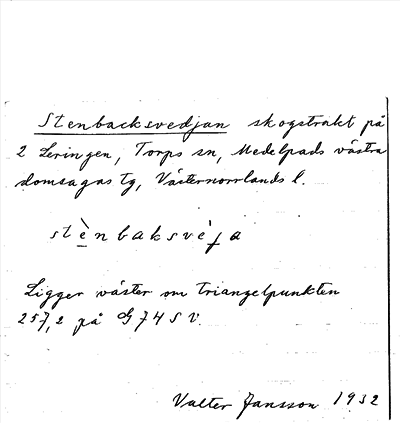 Stenbacksvedjan skogstrakt på
2 Leringen, Torps sn, Medelpads västra
domsagas tg, Västernorrlands l.
stènbaksvéja
Ligger väster om triangelpunkten
257,2 på G 74 S V.
Valter Jansson 1932